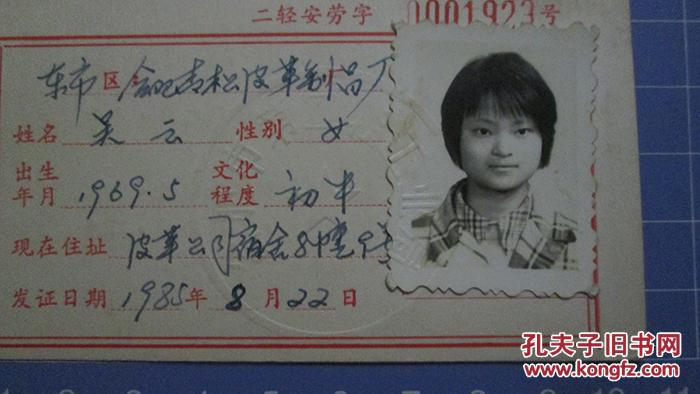 二轻安劳字 0001923号
东市区合肥青松皮革制品厂
姓名 吴云 性别 女
出生年月 1969.5 文化程度 初中
现在住址 皮革公司宿舍8幢9号
发证日期 1985年8月22日
孔夫子旧书网
www.kongfz.com
1 2 3 4 5 6 7 8 9 10 11